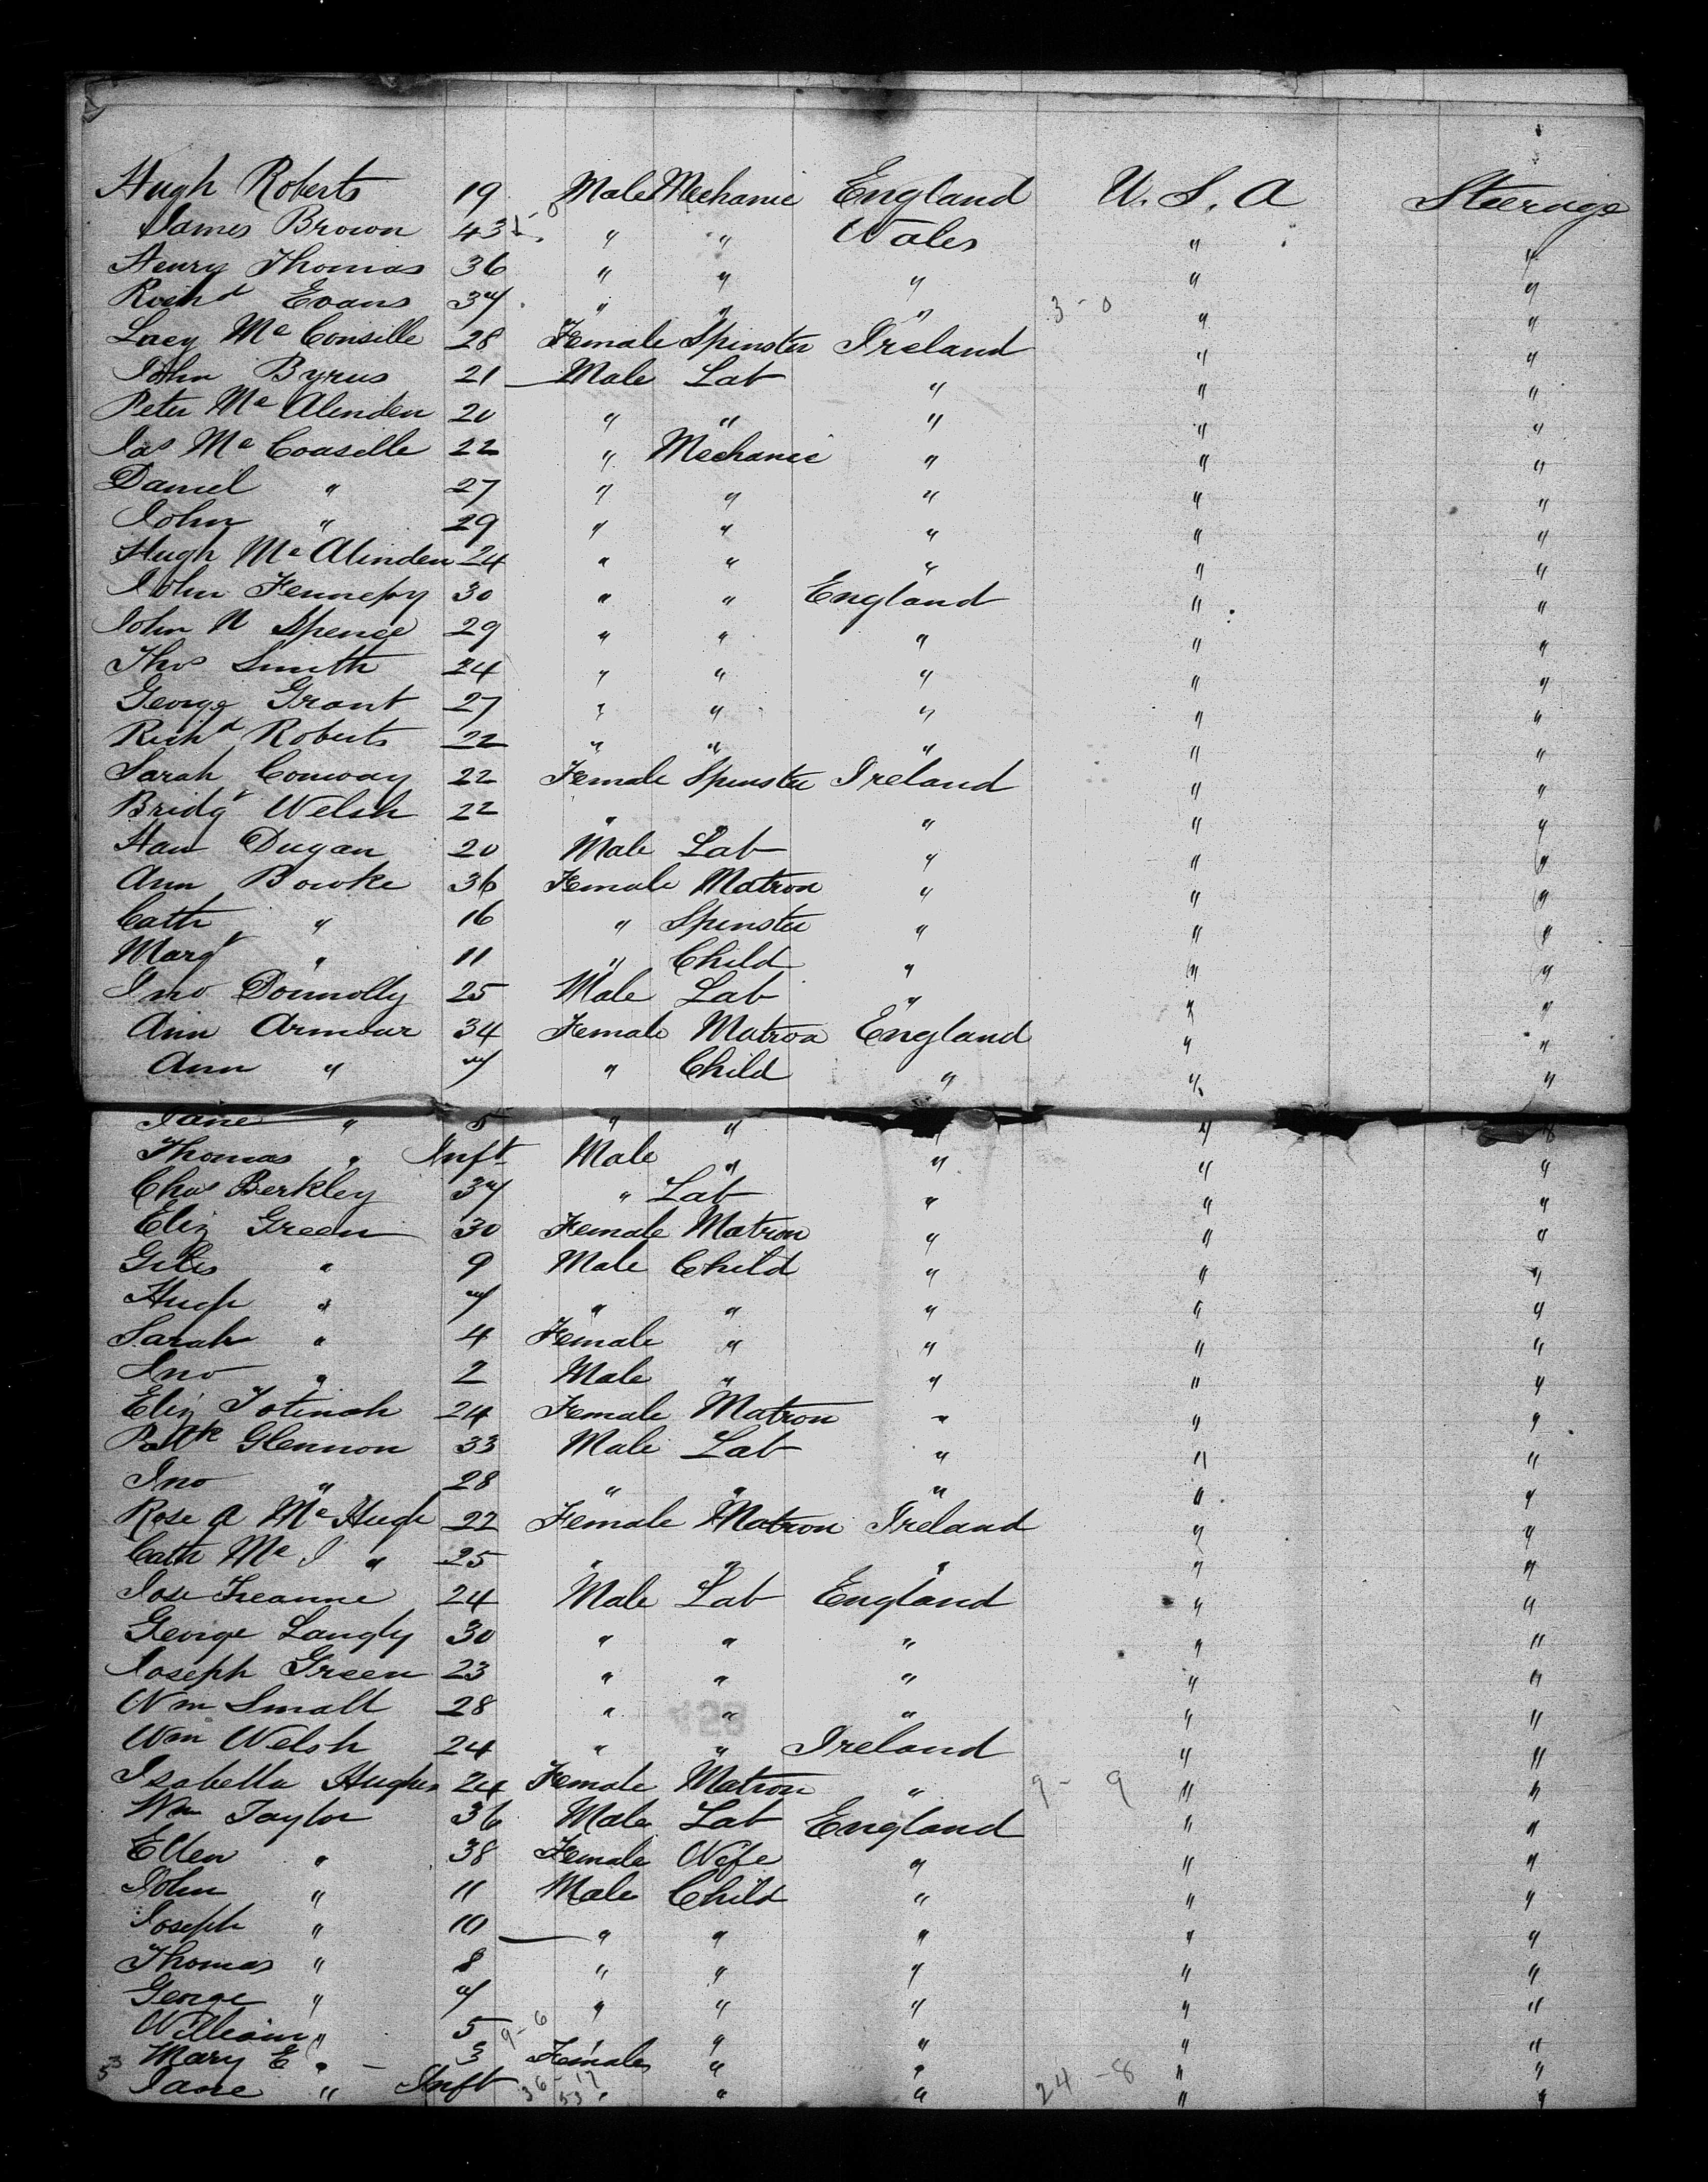 Hugh Roberts 19 Male Mechanic England U.S.A Steerage
James Brown 43 " " Wales " "
Henry Thomas 36 " " " " "
Richd Evans 37 " " " " "
3-0
Lacy Mc Consille 28 Female Spinster Ireland " "
John Byrus 21 Male Lab " " "
Peter Mc Alinden 20 " " " " "
Jas Mc Conselle 22 " Mechanic " " "
Daniel " 27 " " " " "
John " 29 " " " " "
Hugh Mc Alinden 24 " " " " "
John 30 " " England " "
John N Spence 29 " " " " "
Thos Smith 24 " " " " "
George Grant 27 " " " " "
Richd Roberts 22 " " " " "
Sarah Conway 22 Female Spinster Ireland " "
Bridgt Welsh 22 " " " " "
Dugan 20 Male Lab " " "
Ann Bowke 36 Female Matron " " "
Cath " 16 " Spinster " " "
Margt " 11 " Child " " "
Jno Donnolly 25 Male Lab " " "
Ann Armour 34 Female Matron England " "
Ann " 7 " Child " " "
Jane " 5 " " " " "
Thomas " Inft Male " " " "
Chas Berkley 37 " Lab " " "
Eliz Green 30 Female Matron " " "
Giles " 9 Male Child " " "
Hugh " 7 " " " " "
Sarah " 4 Female " " " "
Jno " 2 Male " " " "
Eliz 24 Female Matron " " "
Patk Glennon 33 Male Lab " " "
Jno " 28 " " " " "
Rose A McHugh 22 Female Matron Ireland " "
Cath Mc " 25 " " " " "
Jose 24 Male Lab England " "
George Langly 30 " " " " "
Joseph Green 23 " " " " "
Wm Small 28 " " " " "
Wm Welsh 24 " " Ireland " "
Isabella Hughes 24 Female Matron " 9-9 " "
Wm Taylor 36 Male Lab England " "
Ellen " 38 Female Wife " " "
John " 11 Male Child " " "
Joseph " 10 " " " " "
Thomas " 8 " " " " "
George " 7 " " " " "
William " 5 9-6 " " " " "
Mary E " 3 Female " " " "
53 Jane " Inft 36-17 " " " 24-8 " "
53